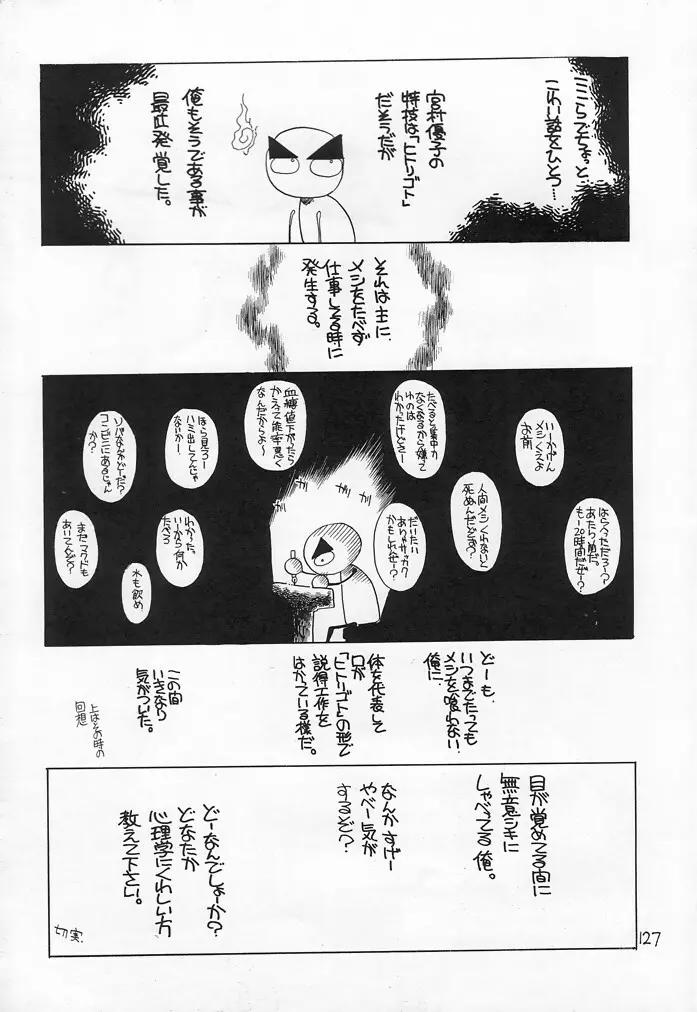 ここらでちょっと…
こわい話をひとつ…
宮村優子の
特技は「ヒトリゴト」
だそうだが
俺もそうである事が
最近発覚した。
それは主に
メシをたべず
仕事してる時に
発生する。
いーかげん
メシくえよ
お前
はらへっただろー?
あたりめだ。
もー20時間だぜー?
たべると集中力
なくなるから嫌て
ゆのは
わかったけどさー
人間メシくわないと
死ぬんだとぞ?
血糖値下がったら
かえって能率悪く
なんだからよ〜
だいたい
ありゃサッカク
かもしれねー?
ギャ
ギャ
ギャ
ほら見ろー
ハミ出してんじゃ
ないかー
ソバなんかどーだ?
コンビニにあるじゃん
か?
わかった。
いーから何か
たべろ
水も飲め
まだマクドも
あいてんぞ?
どーも、
いつまでたっても
メシを喰わない
俺に、
体を代表して
口が
「ヒトリゴト」の形で
説得工作を
はかっている様だ。
この間
いきなり
気がついた。
上はその時の
回想
目が覚めてる間に
無意シキに
しゃべってる俺。
なんかすげー
やべー気が
するぞ?
どーなんでしょーか?
どなたか
心理学にくわしい方
教えて下さい。
切実
127